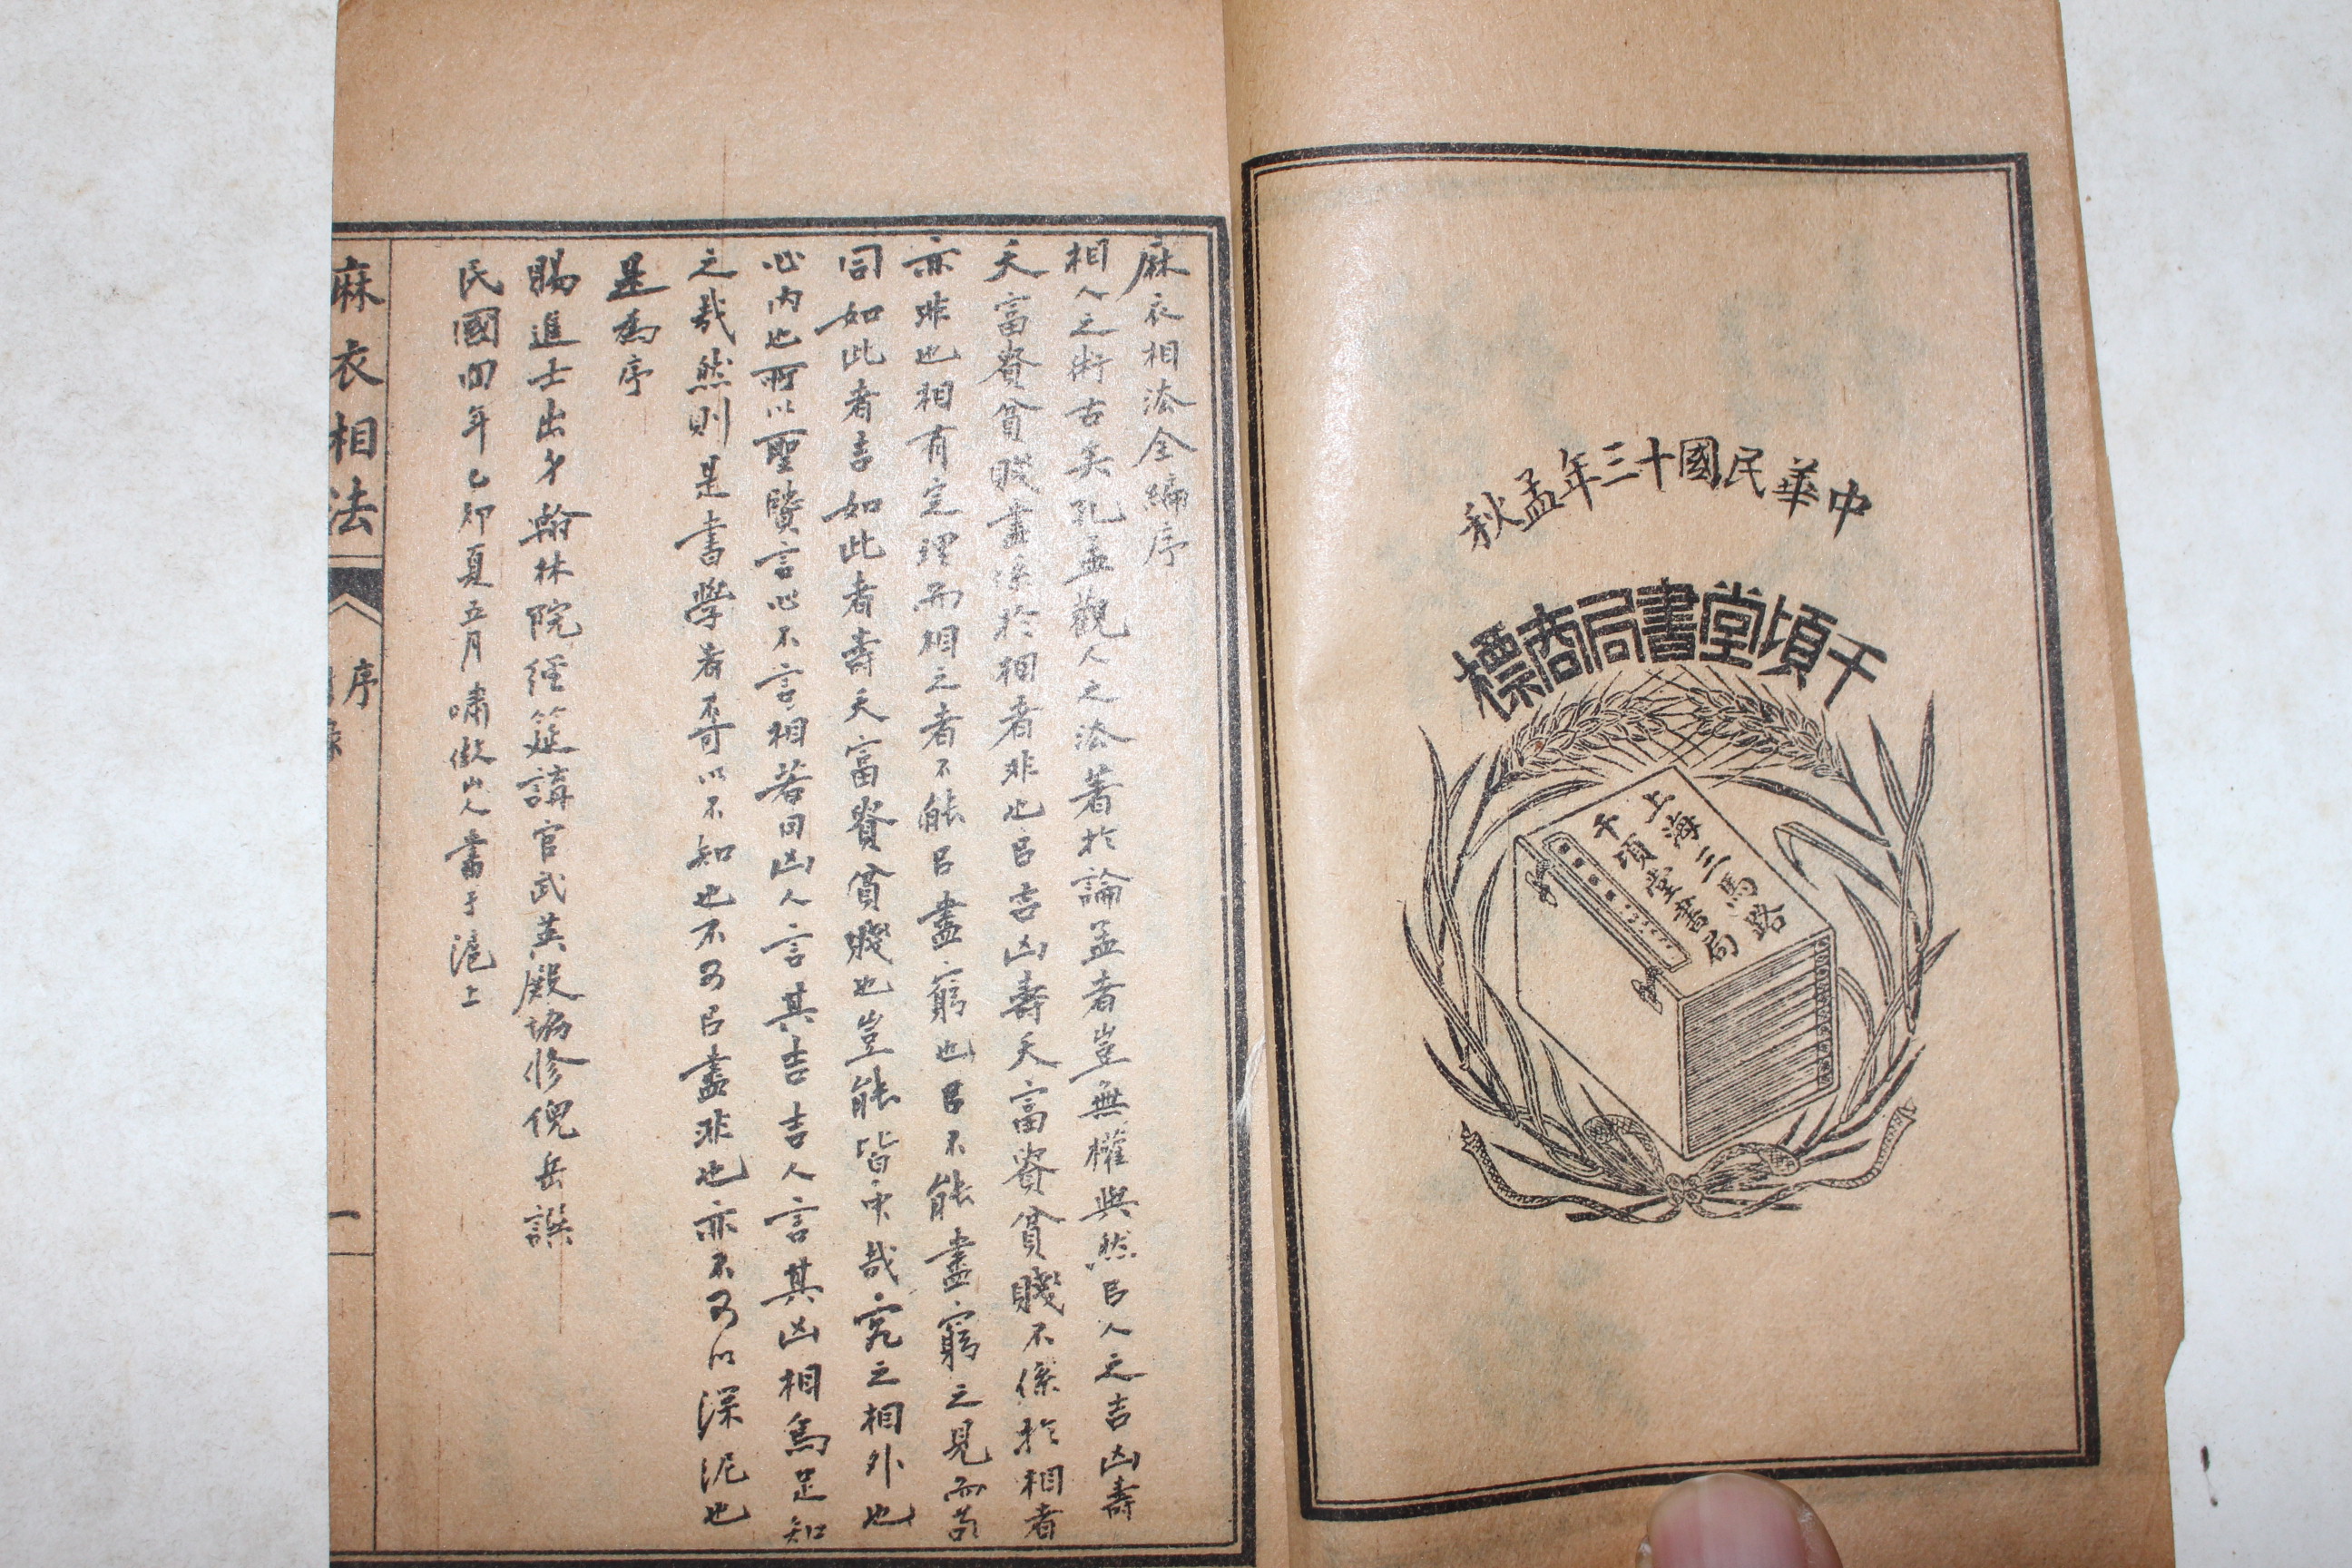 中華民國十三年孟秋
千頃堂書局商標
上海三馬路
千頃堂書局
麻衣相法全編序
相人之術古矣孔孟觀人之法著於論孟者豈無權與然㠯人之吉凶壽
夭富貴貧賤盡係於相者非也㠯吉凶壽夭富貴貧賤不係於相者
亦非也相有定理而相之者不能㠯盡窮也㠯不能盡窮之見而苟
同如此者吉如此者壽夭富貴貧賤也豈能皆中哉究之相外也
心內也所以聖賢言心不言相若曰凶人言其吉吉人言其凶相焉足知
之哉然則是書學者不可以不知也不可㠯盡非也亦不可以深泥也
是為序
賜進士出身翰林院經筵講官武英殿協修倪岳譔
民國四年乙卯夏五月嘯傲山人書于滬上
麻衣相法
序
一